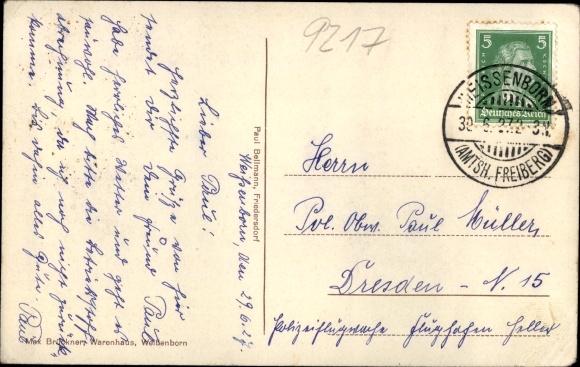 9217
5 5
Deutsches Reich
WEISSENBORN
(AMTSH. FREIBERG)
Weißenborn, den 29.6.27.
Lieber Paul!
Herzlichste Grüße von hier
sendet dir dein Freund Paul
habe herrliches Wetter und geht es
mir wohl. Mag bitte die
da ich noch nicht zurück
komme. Bis dahin alles Gute. Paul
Paul Bellmann, Friedersdorf
Max Brückner, Warenhaus, Weißenborn
Herrn
Pol. Obw. Paul Müller,
Dresden - N. 15
Polizeiflugwache Flughafen Heller